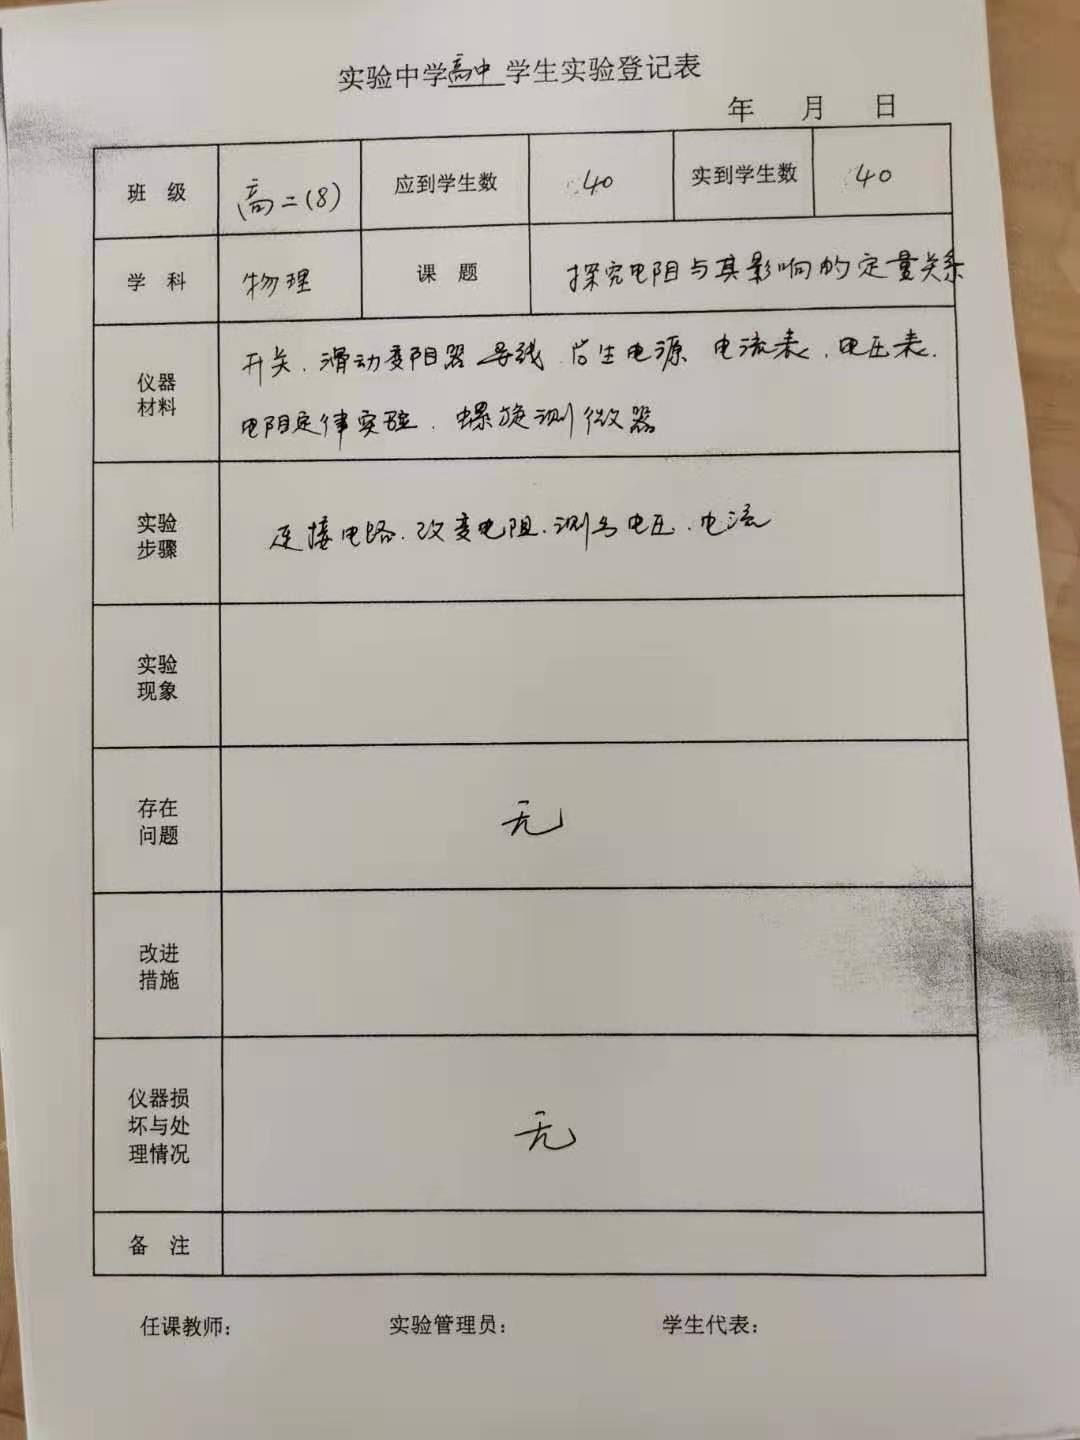 实验中学高中学生实验登记表
年 月 日
班 级 高二(8) 应到学生数 40 实到学生数 40
学 科 物理 课 题 探究电阻与其影响的定量关系
仪器
材料
开关、滑动变阻器 导线 学生电源 电流表、电压表、
电阻定律实验、螺旋测微器
实验
步骤
连接电路、改变电阻、测与电压、电流
实验
现象
存在
问题
无
改进
措施
仪器损
坏与处
理情况
无
备 注
任课教师: 实验管理员: 学生代表: